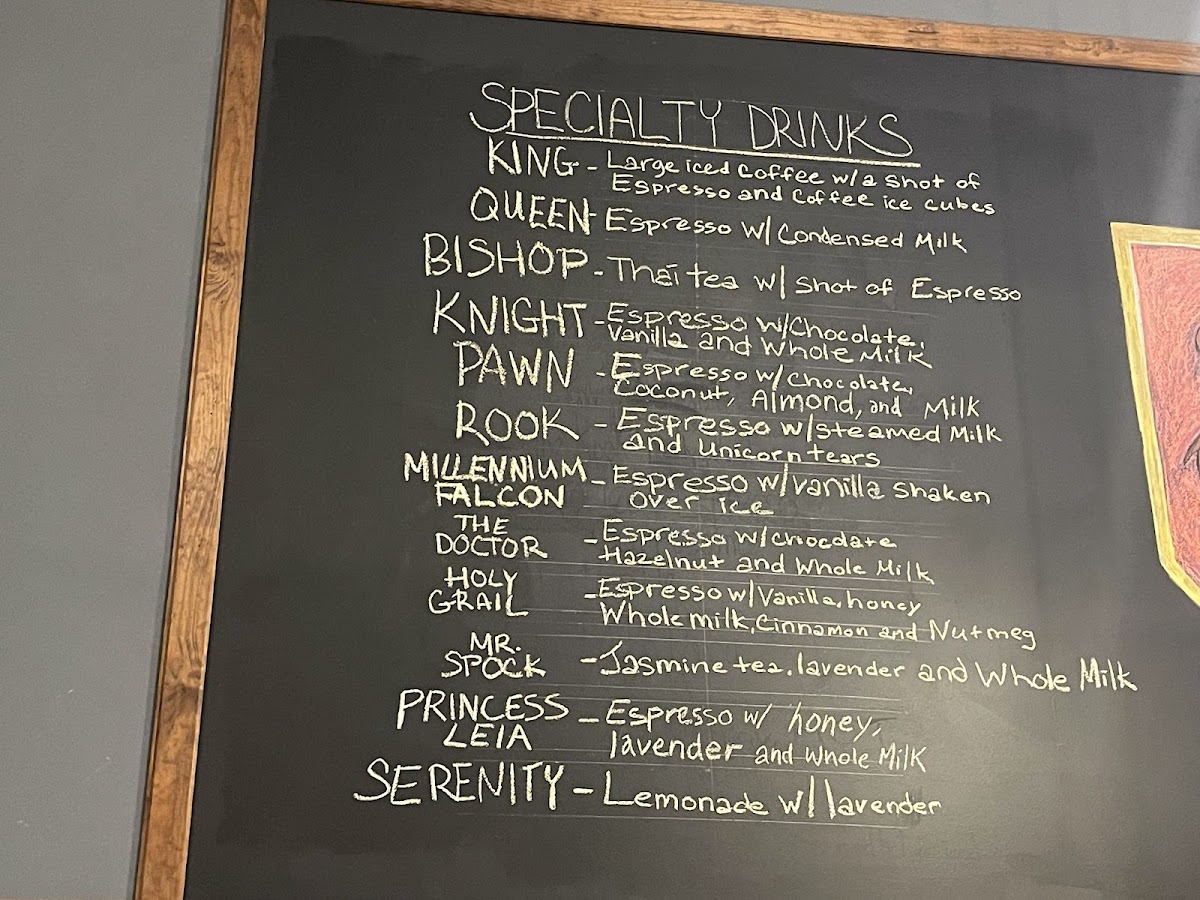 SPECIALTY DRINKS
KING - Large iced coffee w/a shot of
Espresso and coffee ice cubes
QUEEN - Espresso w/ Condensed Milk
BISHOP - Thai tea w/ shot of Espresso
KNIGHT - Espresso w/Chocolate,
Vanilla and Whole Milk
PAWN - Espresso w/chocolate,
Coconut, Almond, and Milk
ROOK - Espresso w/steamed Milk
and unicorn tears
MILLENNIUM - Espresso w/vanilla shaken
FALCON over ice
THE
DOCTOR - Espresso w/chocolate
Hazelnut and Whole Milk
HOLY
GRAIL - Espresso w/Vanilla, honey
Whole milk, Cinnamon and Nutmeg
MR.
SPOCK - Jasmine tea, lavender and Whole Milk
PRINCESS - Espresso w/ honey,
LEIA lavender and Whole Milk
SERENITY - Lemonade w/ lavender